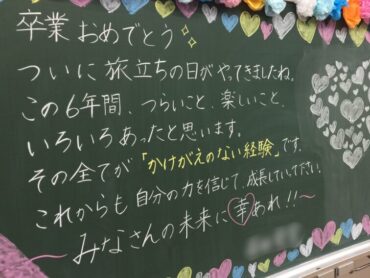 卒業おめでとう
ついに旅立ちの日がやってきましたね。
この6年間、つらいこと、楽しいこと、
いろいろあったと思います。
その全てが「かけがえのない経験」です。
これからも自分の力を信じて、成長していって下さい。
〜みなさんの未来に幸あれ!!〜